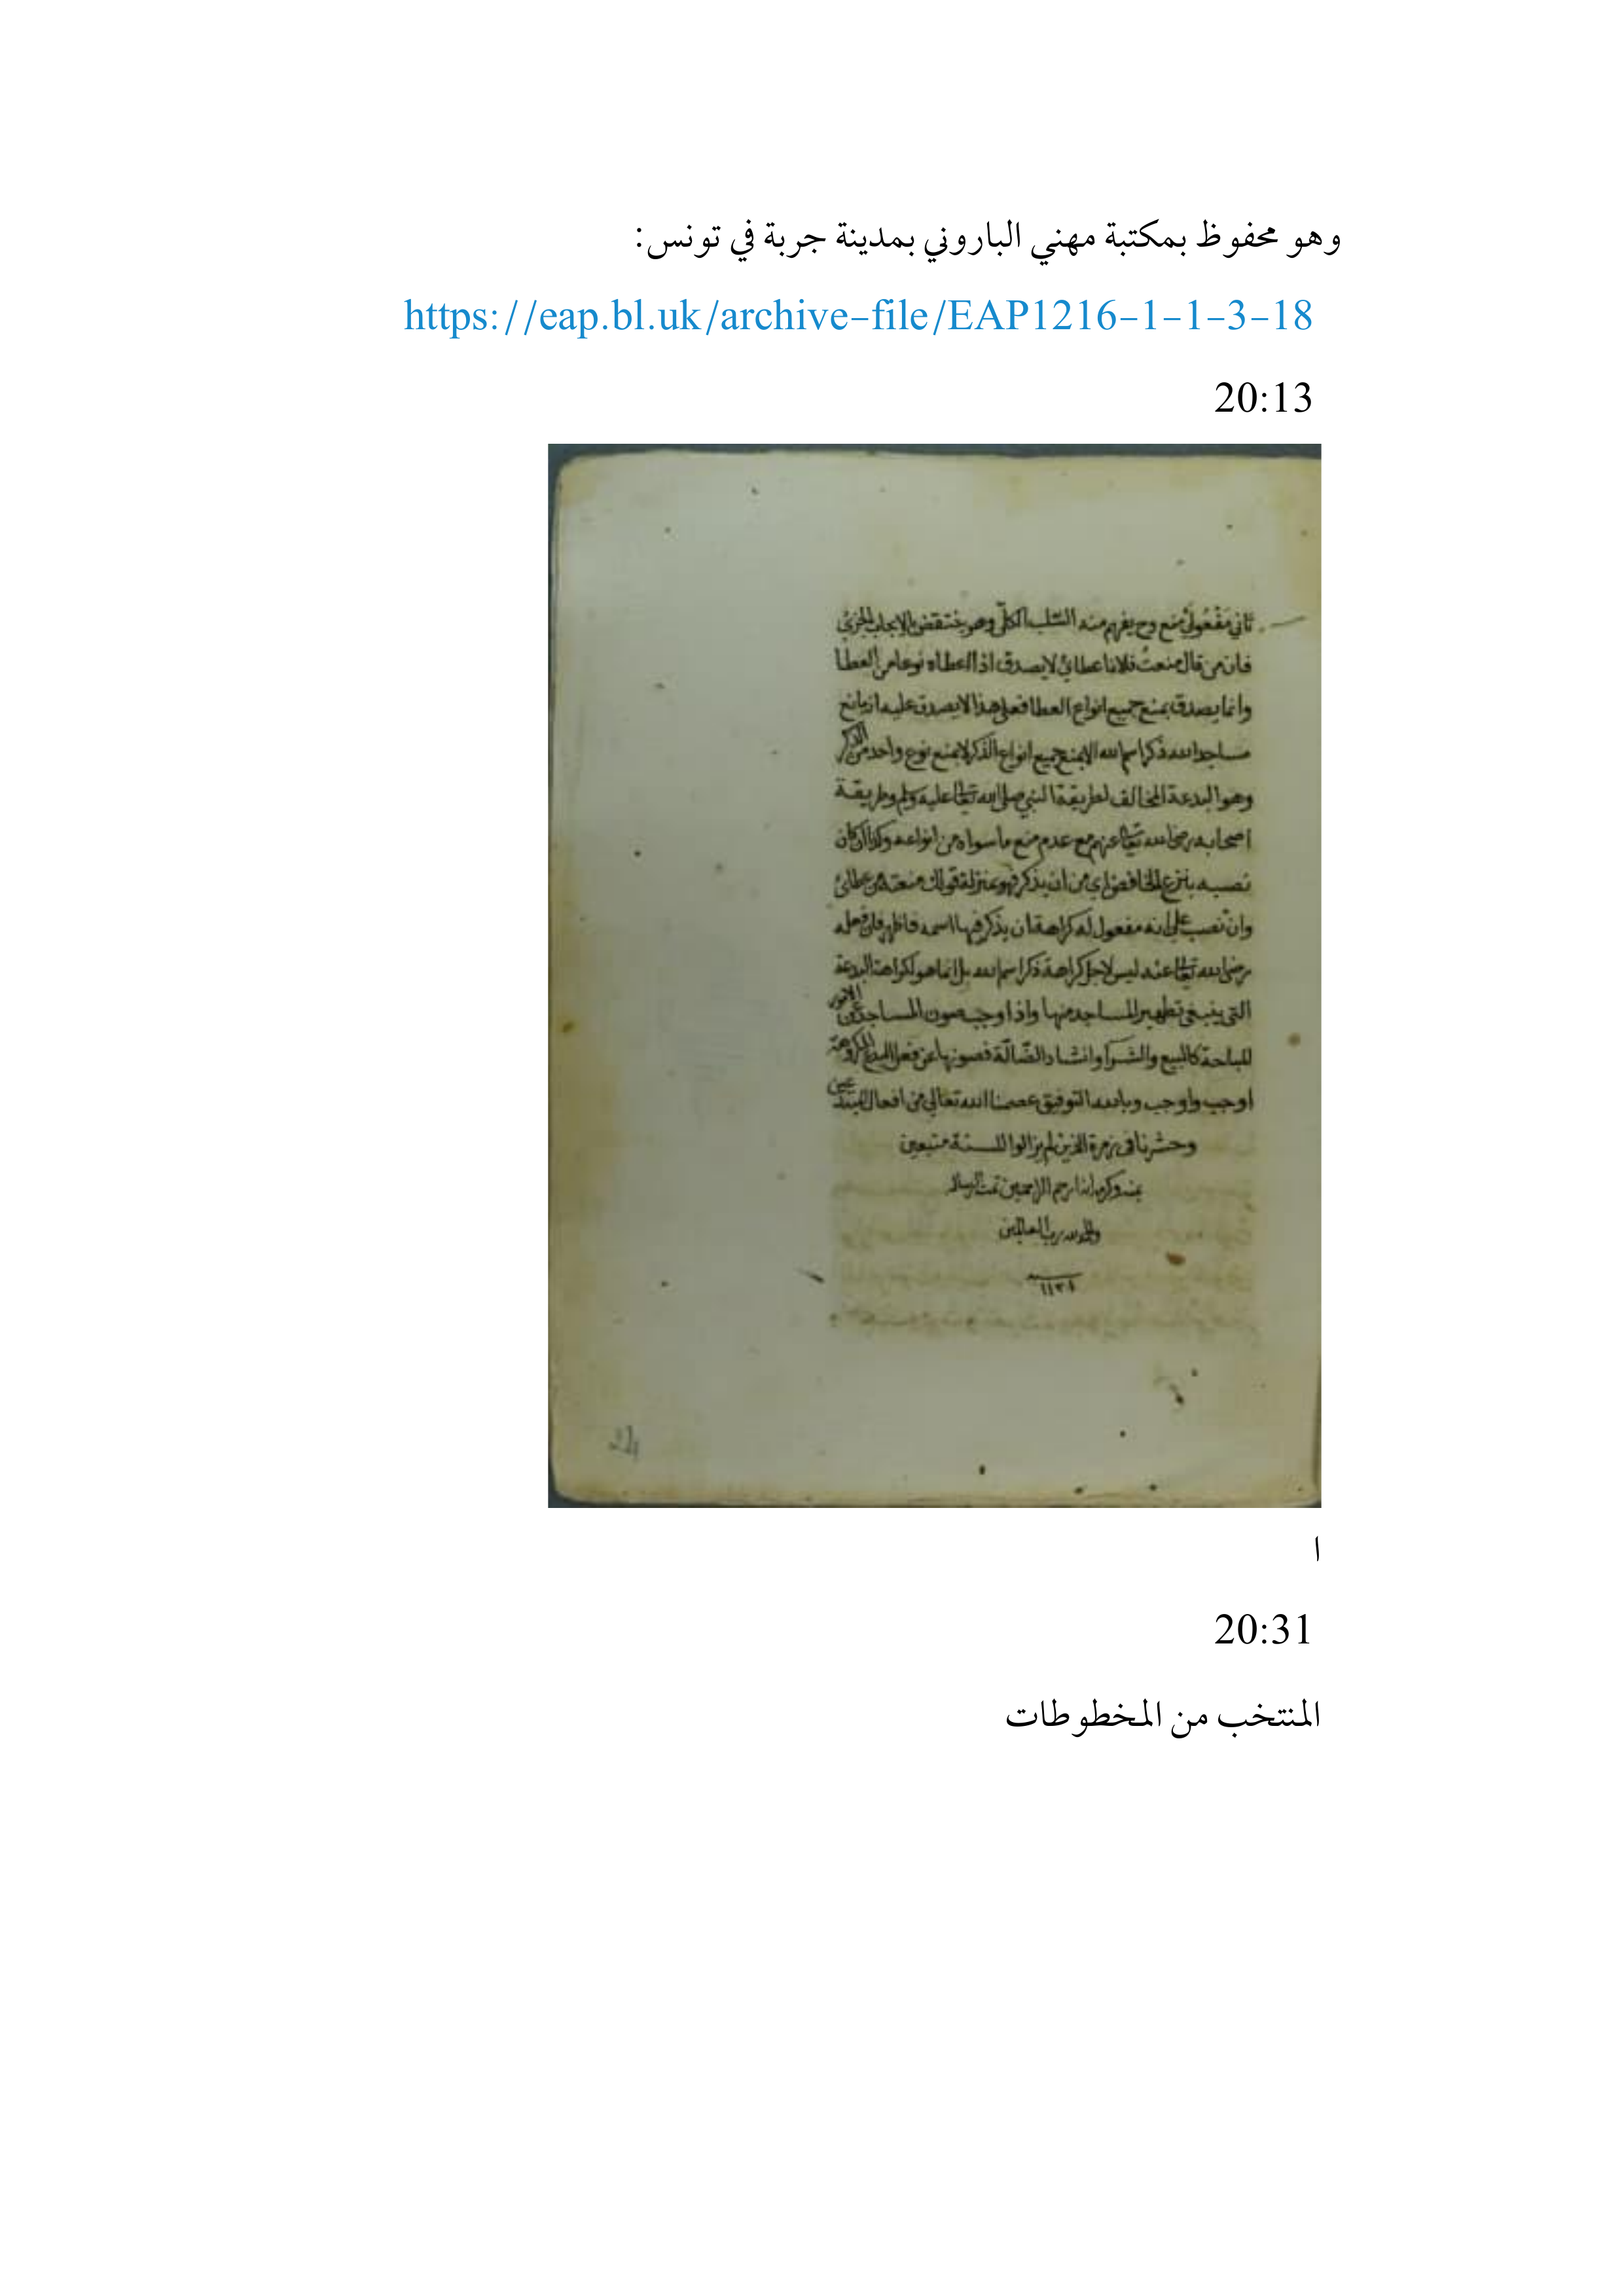 وهو محفوظ بمكتبة مهني الباروني بمدينة جربة في تونس:
https://eap.bl.uk/archive-file/EAP1216-1-1-3-18
20:13
ثاني مَفْعُولَيْ منع وح يفهم منه السّلب الكلّي وهو ينتقض بالايجاب الجزئي
فان من قال منعتُ فلانا عطائي لا يصدق اذا اعطاه نوعا من العطا
وانما يصدق بمنع جميع انواع العطا فعلى هذا لا يصدق عليه انه مانع
مساجد الله ذكر اسم الله الا بمنع جميع انواع الذكر لا بمنع نوع واحد من الذكر
وهو البدعة المخالف لطريقة النبي صلى الله تعالى عليه وسلم وطريقة
اصحابه رضي الله تعالى عنهم مع عدم منع ما سواه من انواعه وكذا ان كان
نصبه بنزع الخافض اي من ان يذكر فهو بمنزلة قولك منعته من عطائي
وان نصب على انه مفعول له كراهة ان يذكر فيها اسمه فاظهر فان فعله
رضي الله تعالى عنه ليس لاجل كراهة ذكر اسم الله بل انما هو لكراهة البدعة
التي ينبغي تطهير المساجد منها واذا وجب صون المساجد عن الامور
المباحة كالبيع والشرآ وانشاد الضّالّة فصونها عن فعل البدع المكروهة
اوجب واوجب وبالله التوفيق عصمنا الله تعالى من افعال المبتدعين
وحشرنا في زمرة الذين لم يزالوا للسنة متبعين
بمنه وكرمه انه ارحم الراحمين تمت الرسالة
والحمد لله رب العالمين
سنة
24
ا
20:31
المنتخب من المخطوطات